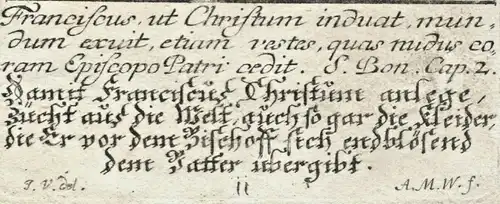 Franciscus, ut Christum induat, mun-
dum exuit, etiam vestes, quas nudus co-
ram Episcopo Patri cedit. S. Bon. Cap. 2.
Damit Franciscus Christum anlege,
Zücht aus die Welt, auch so gar die Kleider
die Er vor dem Bischoff sich endblösend
dem Vatter übergibt.
J. V. del. 11 A. M. W. f.